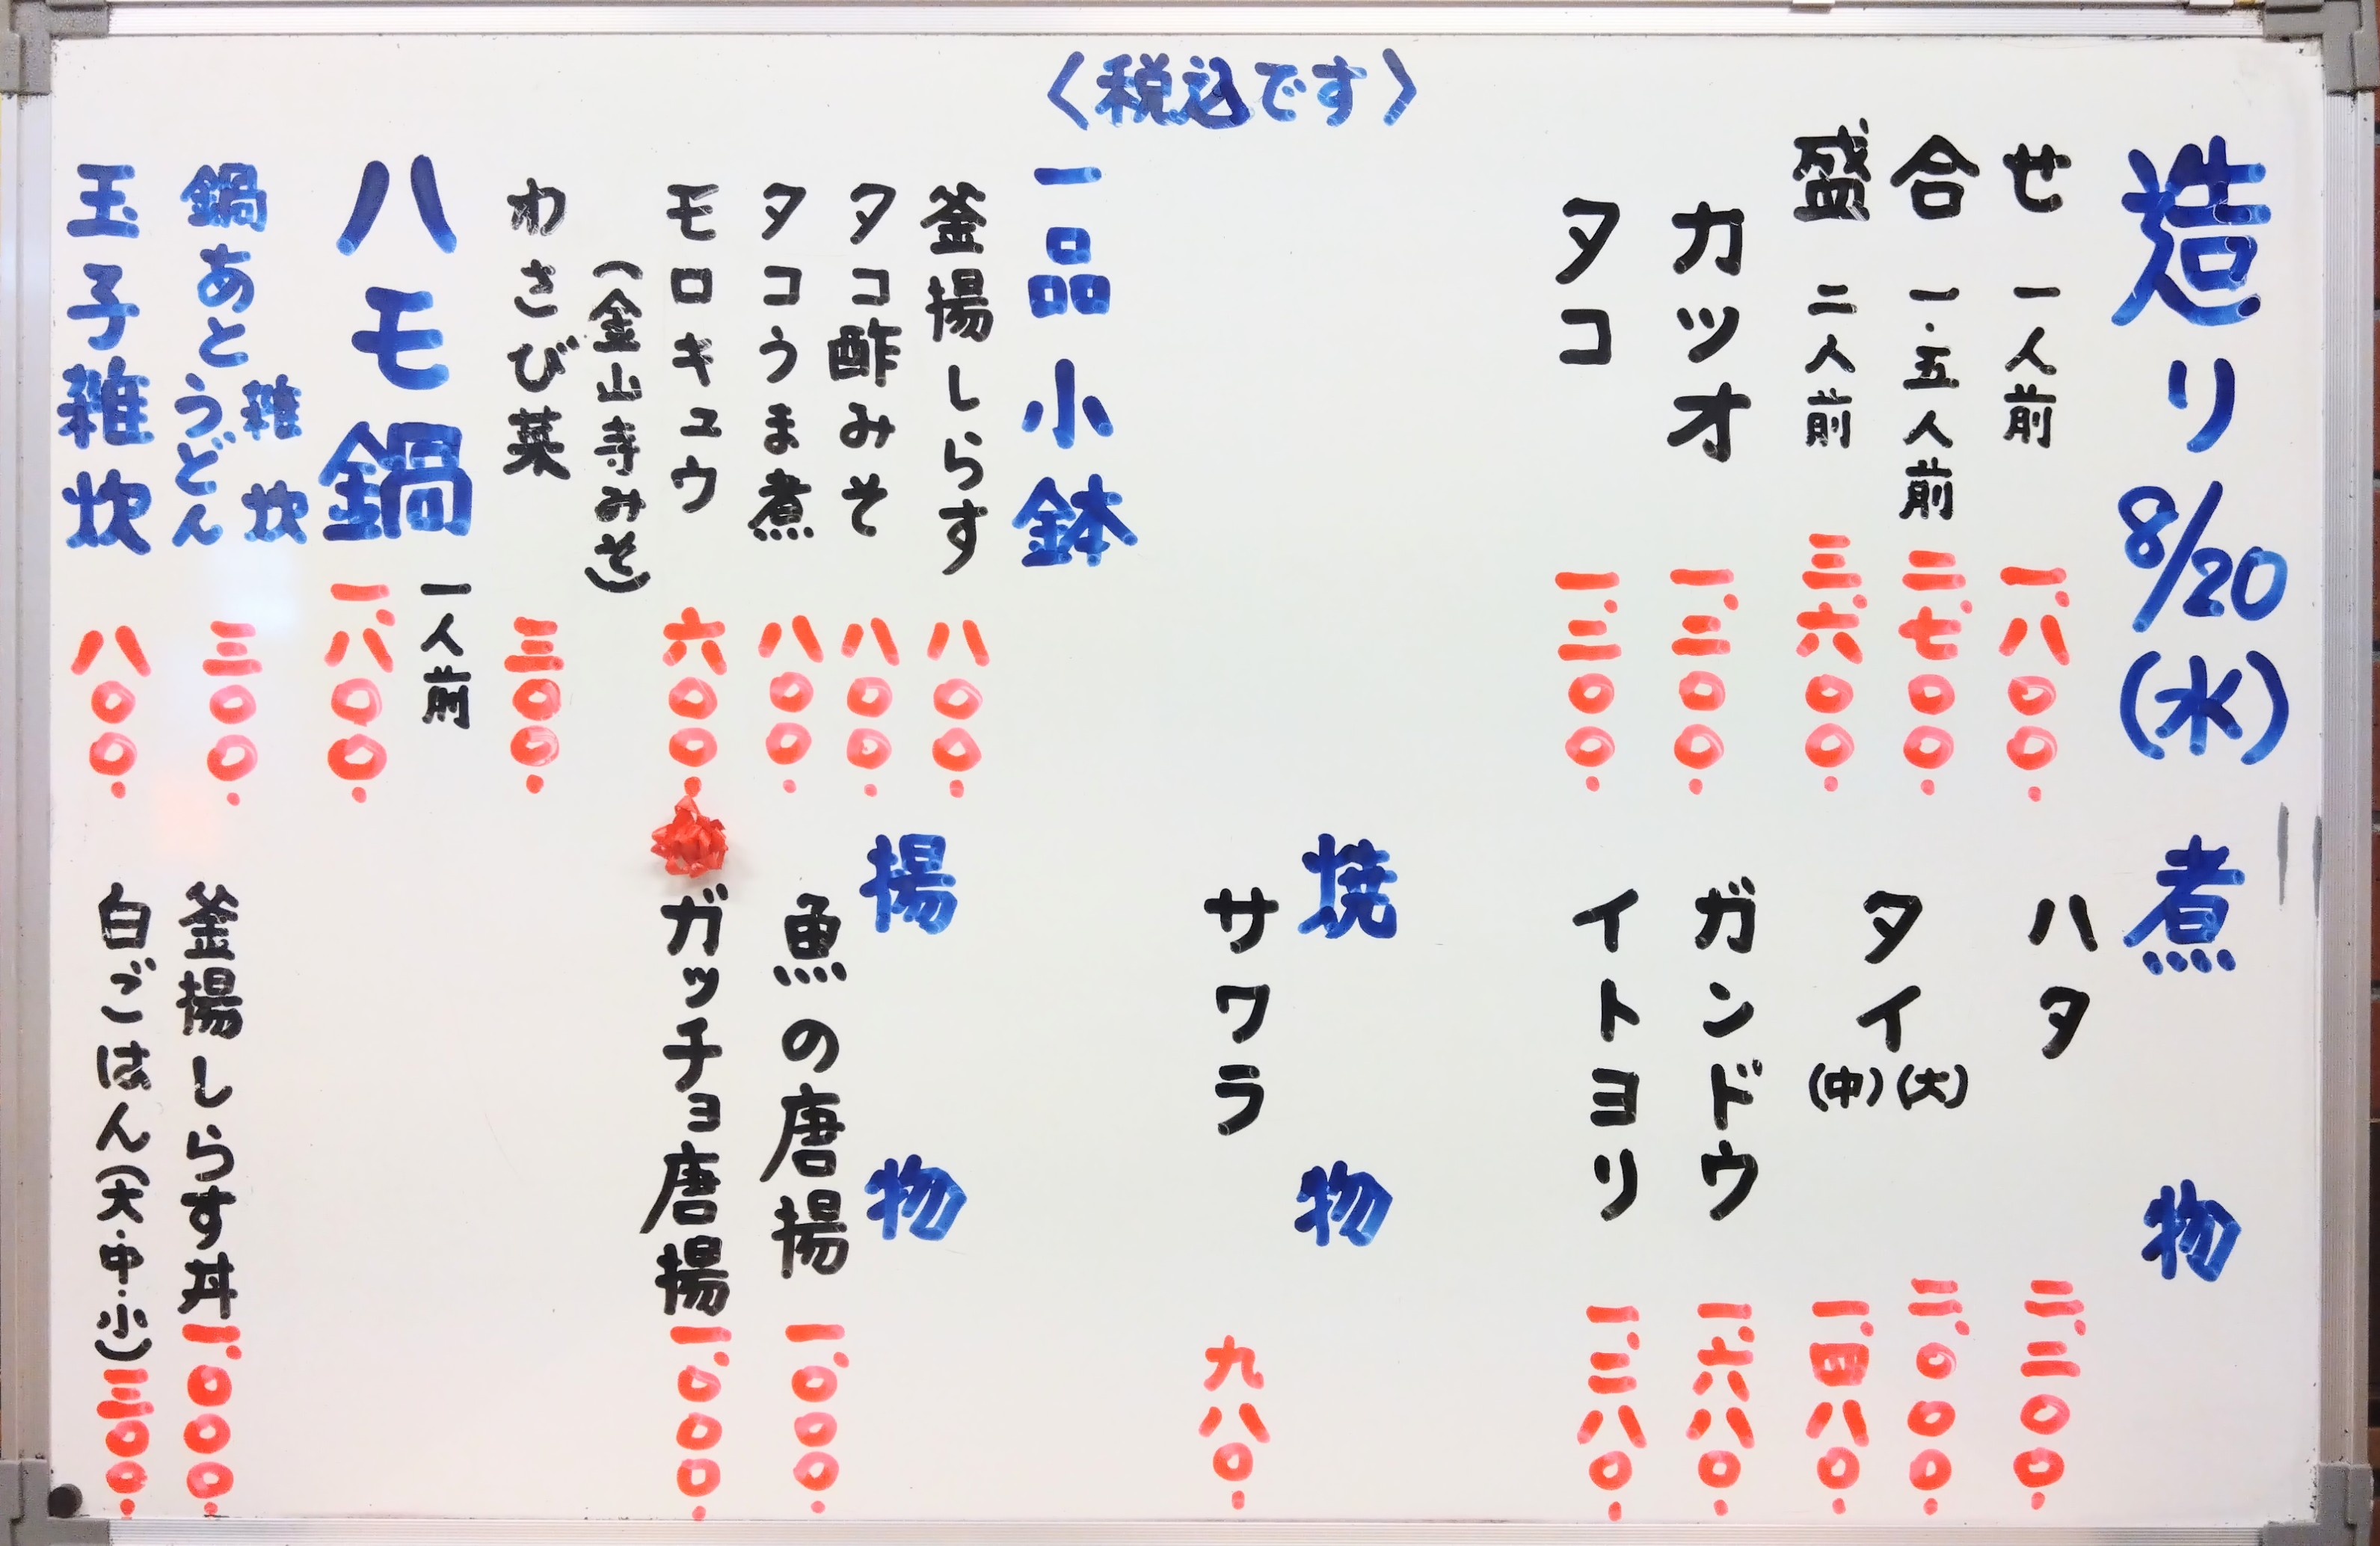 〈税込です〉
造り 8/20(水)
盛合せ
一人前 一、八〇〇.
一.五人前 二、七〇〇.
二人前 三、六〇〇.
カツオ 一、三〇〇.
タコ 一、三〇〇.
一品 小鉢
釜揚しらす 八〇〇.
タコ酢みそ 八〇〇.
タコうま煮 八〇〇.
モロキュウ 六〇〇.
(金山寺みそ)
わさび菜 三〇〇.
ハモ鍋 一人前 一、八〇〇.
鍋あと 雑炊 うどん 三〇〇.
玉子雑炊 八〇〇.
煮物
ハタ 二、二〇〇.
タイ (大) 二、〇〇〇.
(中) 一、四八〇.
ガンドウ 一、六八〇.
イトヨリ 一、三八〇.
焼物
サワラ 九八〇.
揚物
魚の唐揚 一、〇〇〇.
ガッチョ唐揚 一、〇〇〇.
釜揚しらす丼 一、〇〇〇.
白ごはん(大・中・小) 三〇〇.